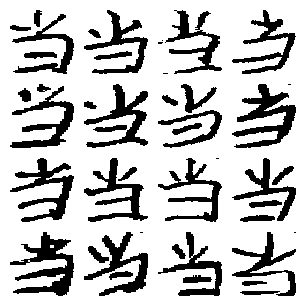 当当当当
当当当当
当当当当
当当当当